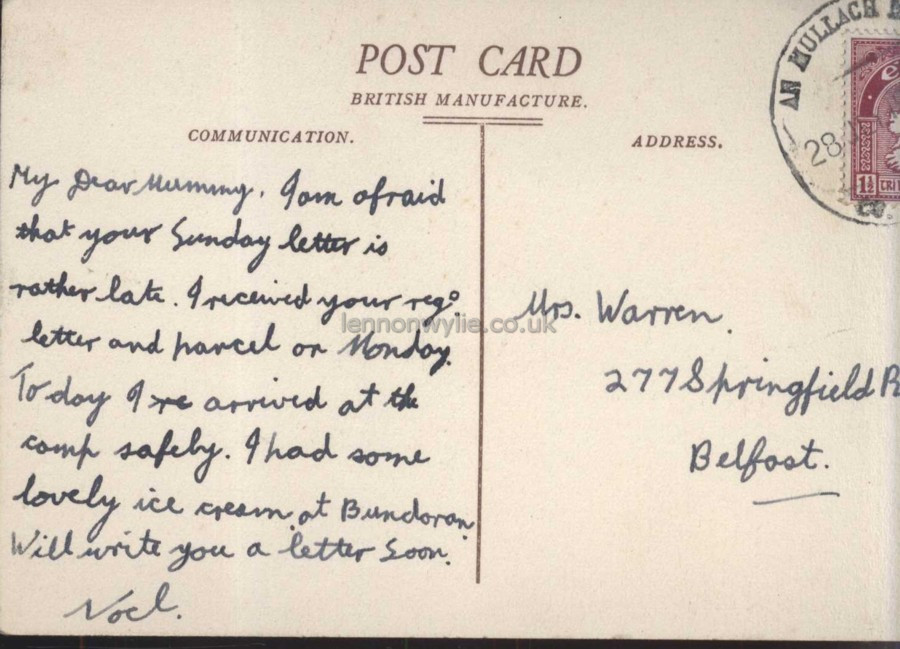 POST CARD
BRITISH MANUFACTURE.
COMMUNICATION.
ADDRESS.
AN MULLACH
28
CO.
1½
My Dear Mummy, I am afraid
that your Sunday letter is
rather late. I received your rego.
letter and parcel on Monday.
To day I re arrived at the
camp safely. I had some
lovely ice cream at Bundoran.
Will write you a letter soon.
Noel.
Mrs. Warren.
277 Springfield R
Belfast.
lennonwylie.co.uk